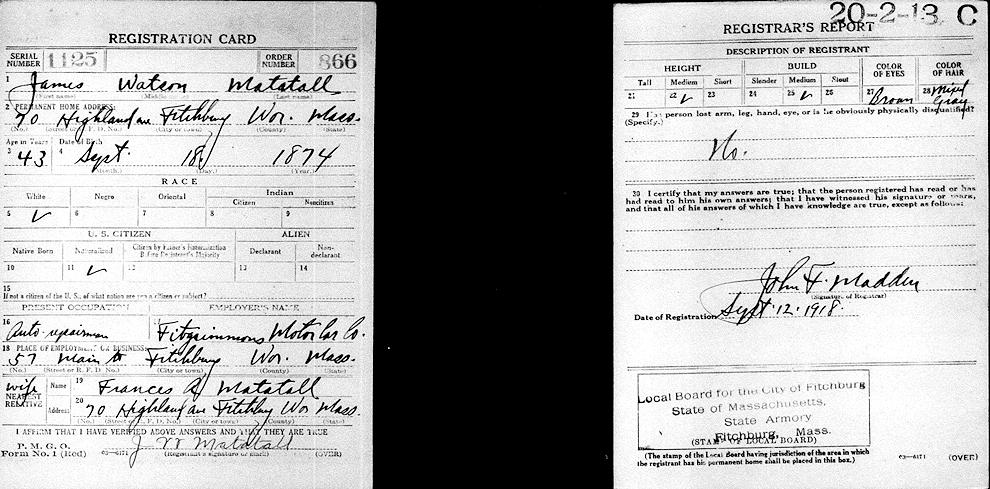 REGISTRATION CARD
SERIAL NUMBER 1125 ORDER NUMBER 866
1 James Watson Matatall
(First name) (Middle name) (Last name)
2 PERMANENT HOME ADDRESS:
70 Highland ave Fitchburg Wor. Mass.
(No.) (Street or R. F. D. No.) (City or town) (County) (State)
Age in Years Date of Birth
3 43 4 Sept. 18, 1874
(Month.) (Day.) (Year.)
RACE
White Negro Oriental Indian
Citizen Noncitizen
5 ✓ 6 7 8 9
U. S. CITIZEN ALIEN
Native Born Naturalized Citizen by Father's Naturalization Before Registrant's Majority Declarant Non-declarant
10 11 ✓ 12 13 14
15
If not a citizen of the U. S., of what nation are you a citizen or subject?
PRESENT OCCUPATION EMPLOYER'S NAME
16 Auto-repairman 17 Fitzgimmons Motor Car Co.
18 PLACE OF EMPLOYMENT OR BUSINESS:
57 Main St Fitchburg Wor. Mass.
(No.) (Street or R. F. D. No.) (City or town) (County) (State)
wife Name 19 Frances A Matatall
NEAREST RELATIVE Address 20 70 Highland ave Fitchburg Wor Mass.
(No.) (Street or R. F. D. No.) (City or town) (County) (State)
I AFFIRM THAT I HAVE VERIFIED ABOVE ANSWERS AND THAT THEY ARE TRUE
P. M. G. O.
Form No. 1 (Red) 03—6171 J W Matatall
(Registrant's signature or mark) (OVER)
20-2-13. C
REGISTRAR'S REPORT
DESCRIPTION OF REGISTRANT
HEIGHT BUILD COLOR OF EYES COLOR OF HAIR
Tall Medium Short Slender Medium Stout
21 22 ✓ 23 24 25 ✓ 26 27 Brown 28 Mixed Gray
29 Has person lost arm, leg, hand, eye, or is he obviously physically disqualified?
(Specify.)
No.
30 I certify that my answers are true; that the person registered has read or has
had read to him his own answers; that I have witnessed his signature or mark,
and that all of his answers of which I have knowledge are true, except as follows:
John F. Madden
(Signature of Registrar)
Date of Registration Sept. 12, 1918.
Local Board for the City of Fitchburg
State of Massachusetts,
State Armory
Fitchburg, Mass.
(STAMP OF LOCAL BOARD)
(The stamp of the Local Board having jurisdiction of the area in which
the registrant has his permanent home shall be placed in this box.)
03—6171 (OVER)